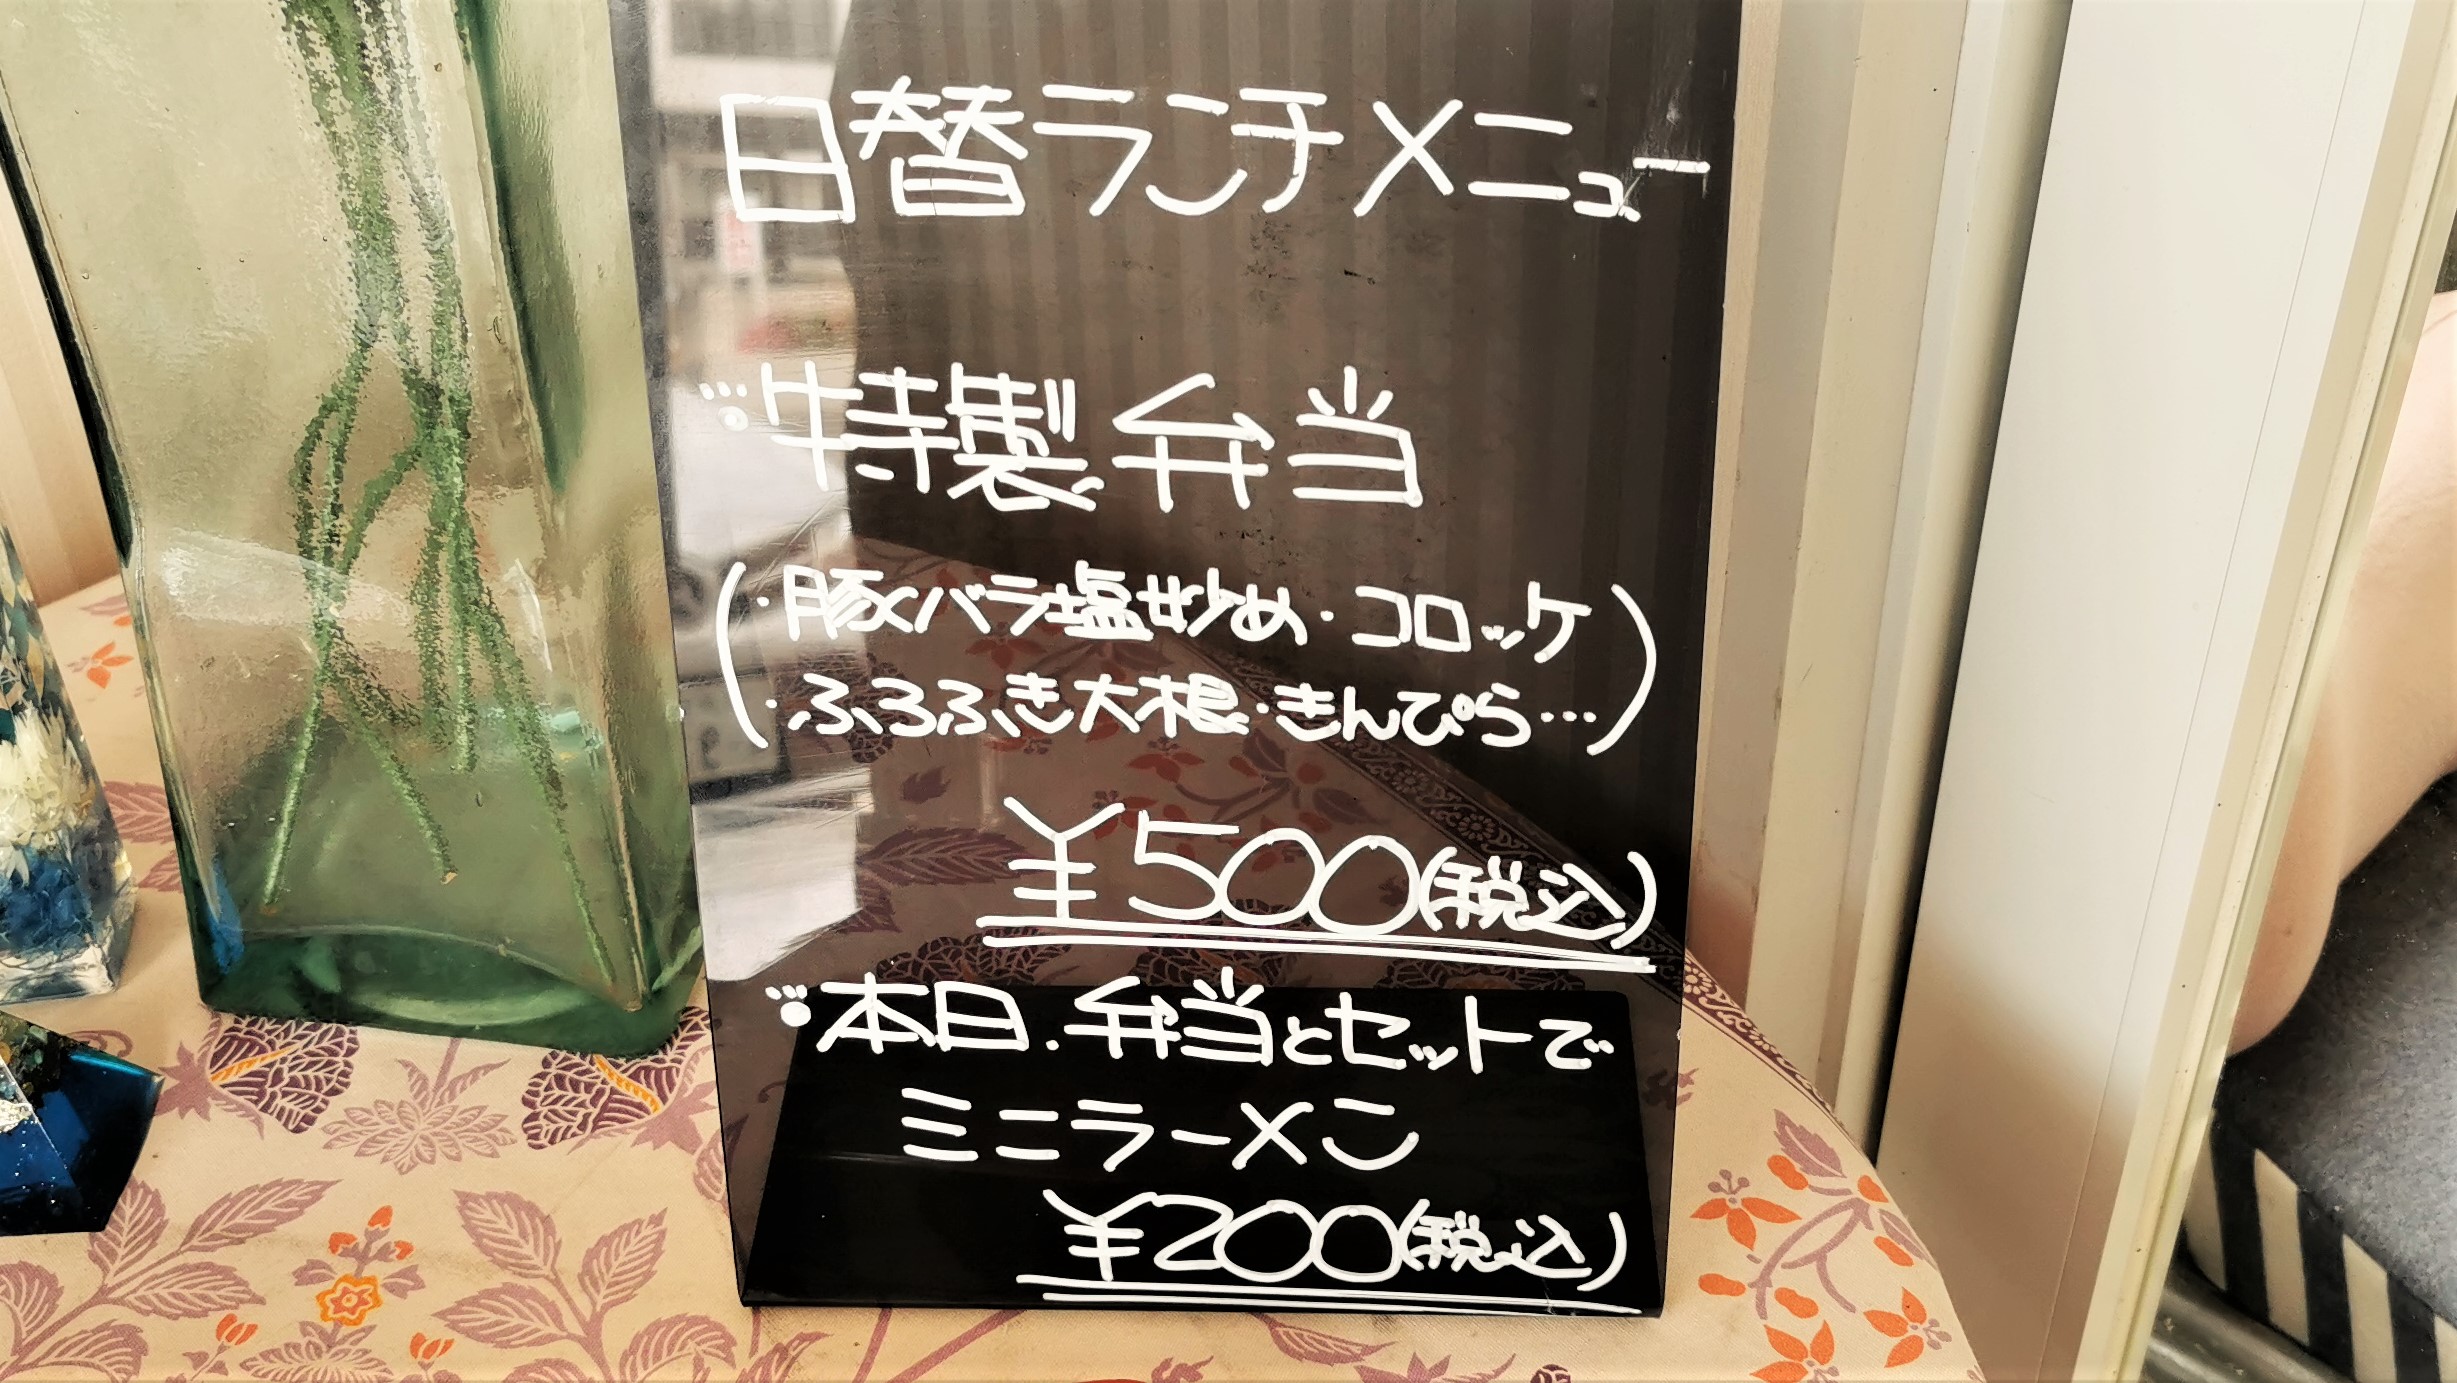 日替ランチメニュー
特製弁当
(・豚バラ塩炒め・コロッケ
・ふろふき大根・きんぴら…)
¥500(税込)
本日.弁当とセットで
ミニラーメン
¥200(税込)